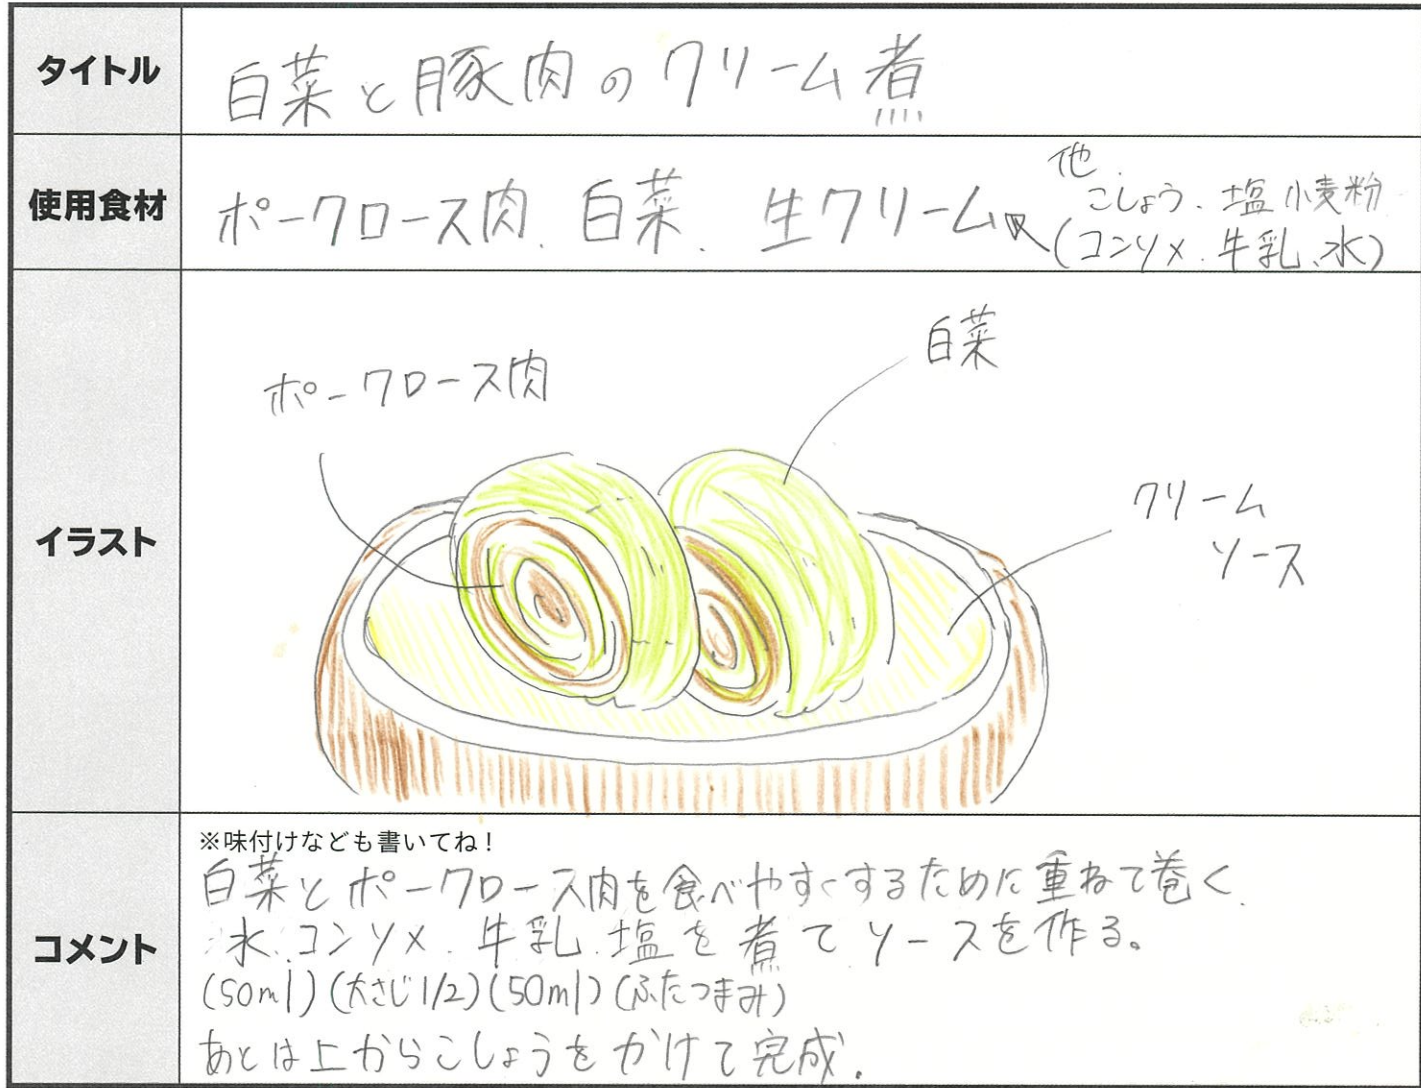 タイトル
白菜と豚肉のクリーム煮
使用食材
ポークロース肉、白菜、生クリーム
他
こしょう、塩 小麦粉
(コンソメ、牛乳、水)
イラスト
ポークロース肉
白菜
クリーム
ソース
コメント
※味付けなども書いてね！
白菜とポークロース肉を食べやすくするために重ねて巻く
水、コンソメ、牛乳、塩を煮てソースを作る。
(50ml)(大さじ1/2)(50ml)(ふたつまみ)
あとは上からこしょうをかけて完成.